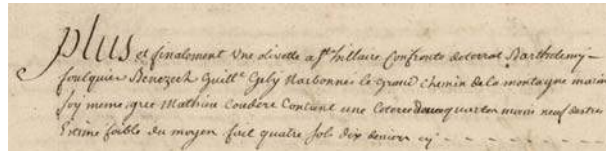 Plus et finaloment une olivette a st hillaire Confronte doterral Barthelemy
foulquier Benezech Guille Gely Narbonne le grand chemin dela montagne
Soy meme gree Mathieu Coudere Contient une Coteree quarton moins neuf dextres
Estime foible du moyen fait quatre sols dix deniers cy